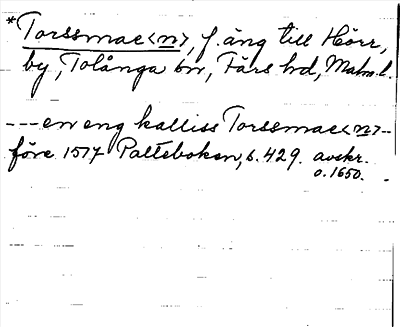 *Torssmae<n>, f. äng till Hörr,
by, Tolånga sn, Färs hd, Malm. l.
---en eng kalliss Torssmae<n>--
före 1517 Palteboken, s. 429. avskr.
o. 1650.